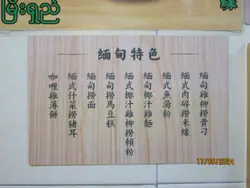 မြီးရှည်
線
緬甸特色
緬甸雞柳撈貴刁
緬式肉碎撈米線
緬式魚湯粉
緬式椰汁雞麵
緬式椰汁雞柳撈賴粉
緬甸撈馬豆糕
緬甸撈面
緬式什菜撈豬耳
咖喱雞薄餅